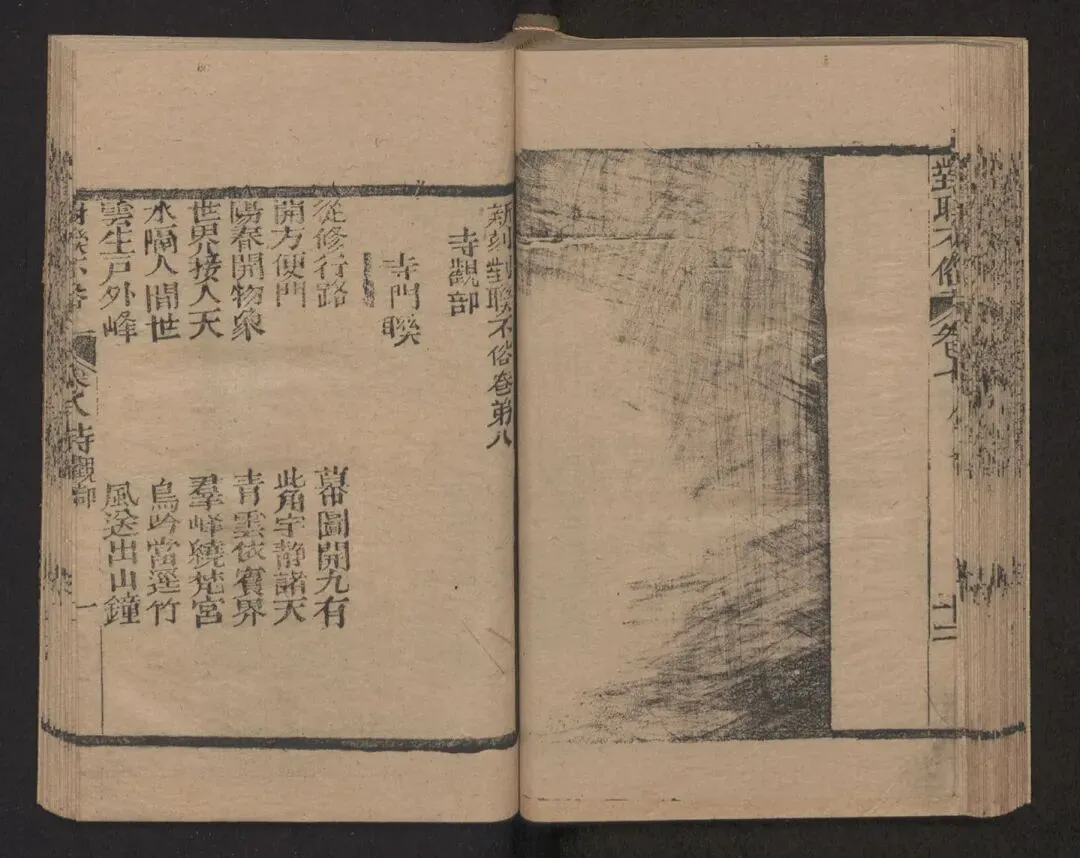 對聯不俗
卷七
十二
新刻對聯不俗卷第八
寺觀部
寺門聯
從修行路
幕圖開九有
開方便門
此角宇静諸天
陽春開物象
青雲依寶界
世界接人天
羣峰繞梵宮
水隔人間世
鳥吟當逕竹
雲生戸外峰
風送出山鐘
對聯不俗
卷八
寺觀部
一